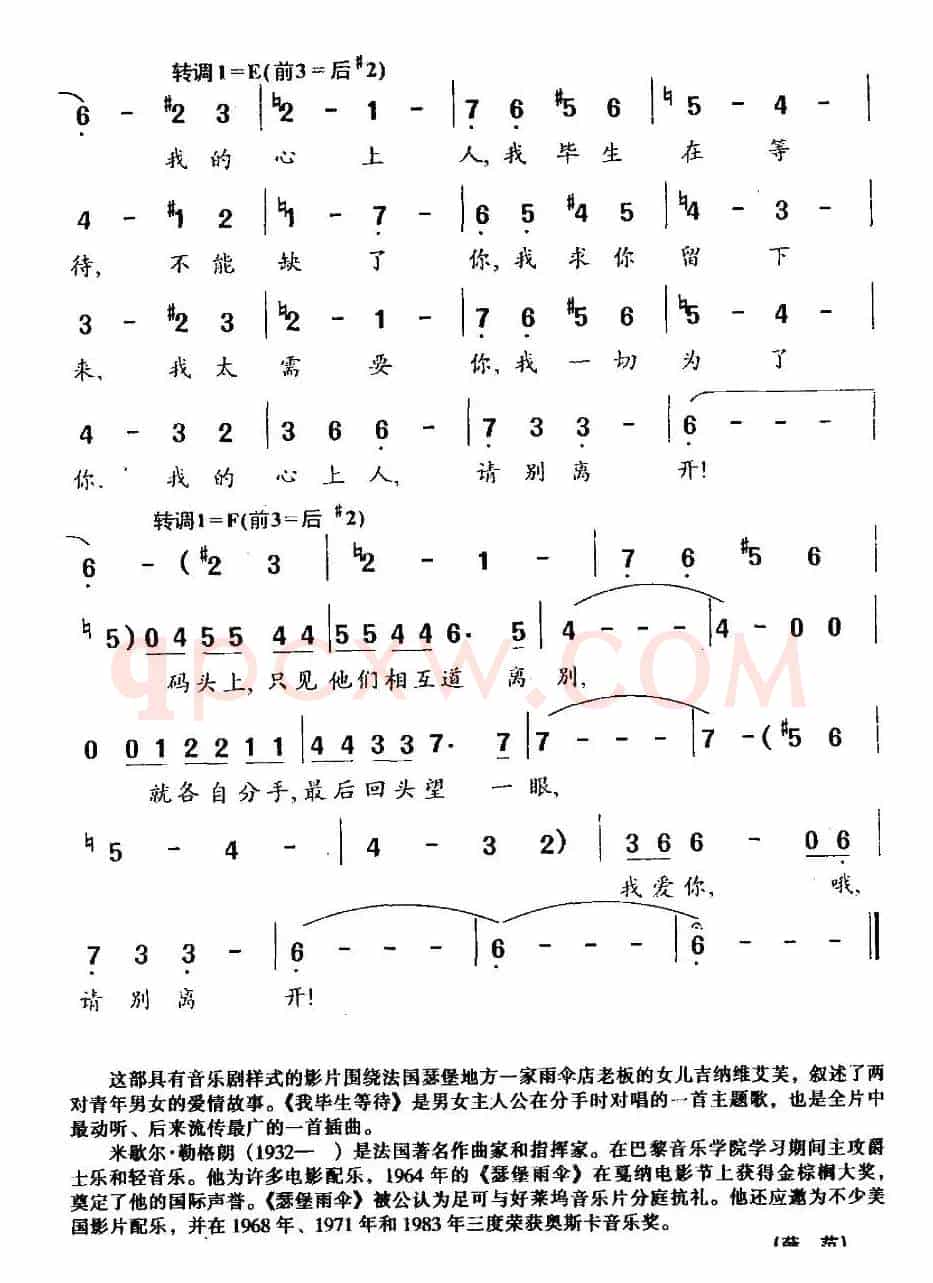 转调1=E(前3=后#2)
6 - #2 3 | ♮2 - 1 - | 7 6 #5 6 | ♮5 - 4 - |
我的心上人,我毕生在等
4 - #1 2 | ♮1 - 7 - | 6 5 #4 5 | ♮4 - 3 - |
待,不能缺了你,我求你留下
3 - #2 3 | ♮2 - 1 - | 7 6 #5 6 | ♮5 - 4 - |
来,我太需要你,我一切为了
4 - 3 2 | 3 6 6 - | 7 3 3 - | 6 - - - |
你.我的心上人,请别离开!
转调1=F(前3=后 #2)
6 - (#2 3 | ♮2 - 1 - | 7 6 #5 6 |
♮5) 0 4 5 5 4 4 | 5 5 4 4 6· 5 | 4 - - - | 4 - 0 0
码头上,只见他们相互道离别,
0 0 1 2 2 1 1 | 4 4 3 3 7· 7 | 7 - - - | 7 - (#5 6
就各自分手,最后回头望一眼,
♮5 - 4 - | 4 - 3 2) | 3 6 6 - 0 6 |
我爱你,哦,
7 3 3 - | 6 - - - | 6 - - - | 6 - - - ‖
请别离开!
qpcxw.COM
这部具有音乐剧样式的影片围绕法国瑟堡地方一家雨伞店老板的女儿吉纳维艾芙，叙述了两
对青年男女的爱情故事。《我毕生等待》是男女主人公在分手时对唱的一首主题歌，也是全片中
最动听、后来流传最广的一首插曲。
米歇尔·勒格朗（1932—　）是法国著名作曲家和指挥家。在巴黎音乐学院学习期间主攻爵
士乐和轻音乐。他为许多电影配乐，1964年的《瑟堡雨伞》在戛纳电影节上获得金棕榈大奖，
奠定了他的国际声誉。《瑟堡雨伞》被公认为足可与好莱坞音乐片分庭抗礼。他还应邀为不少美
国影片配乐，并在1968年、1971年和1983年三度荣获奥斯卡音乐奖。
(薛 范)